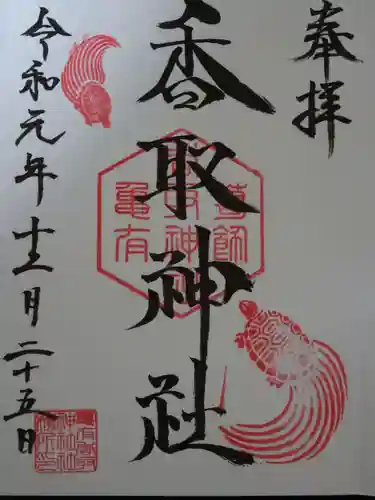 奉拝
香取神社
亀有
香取神社
令和元年十二月二十五日